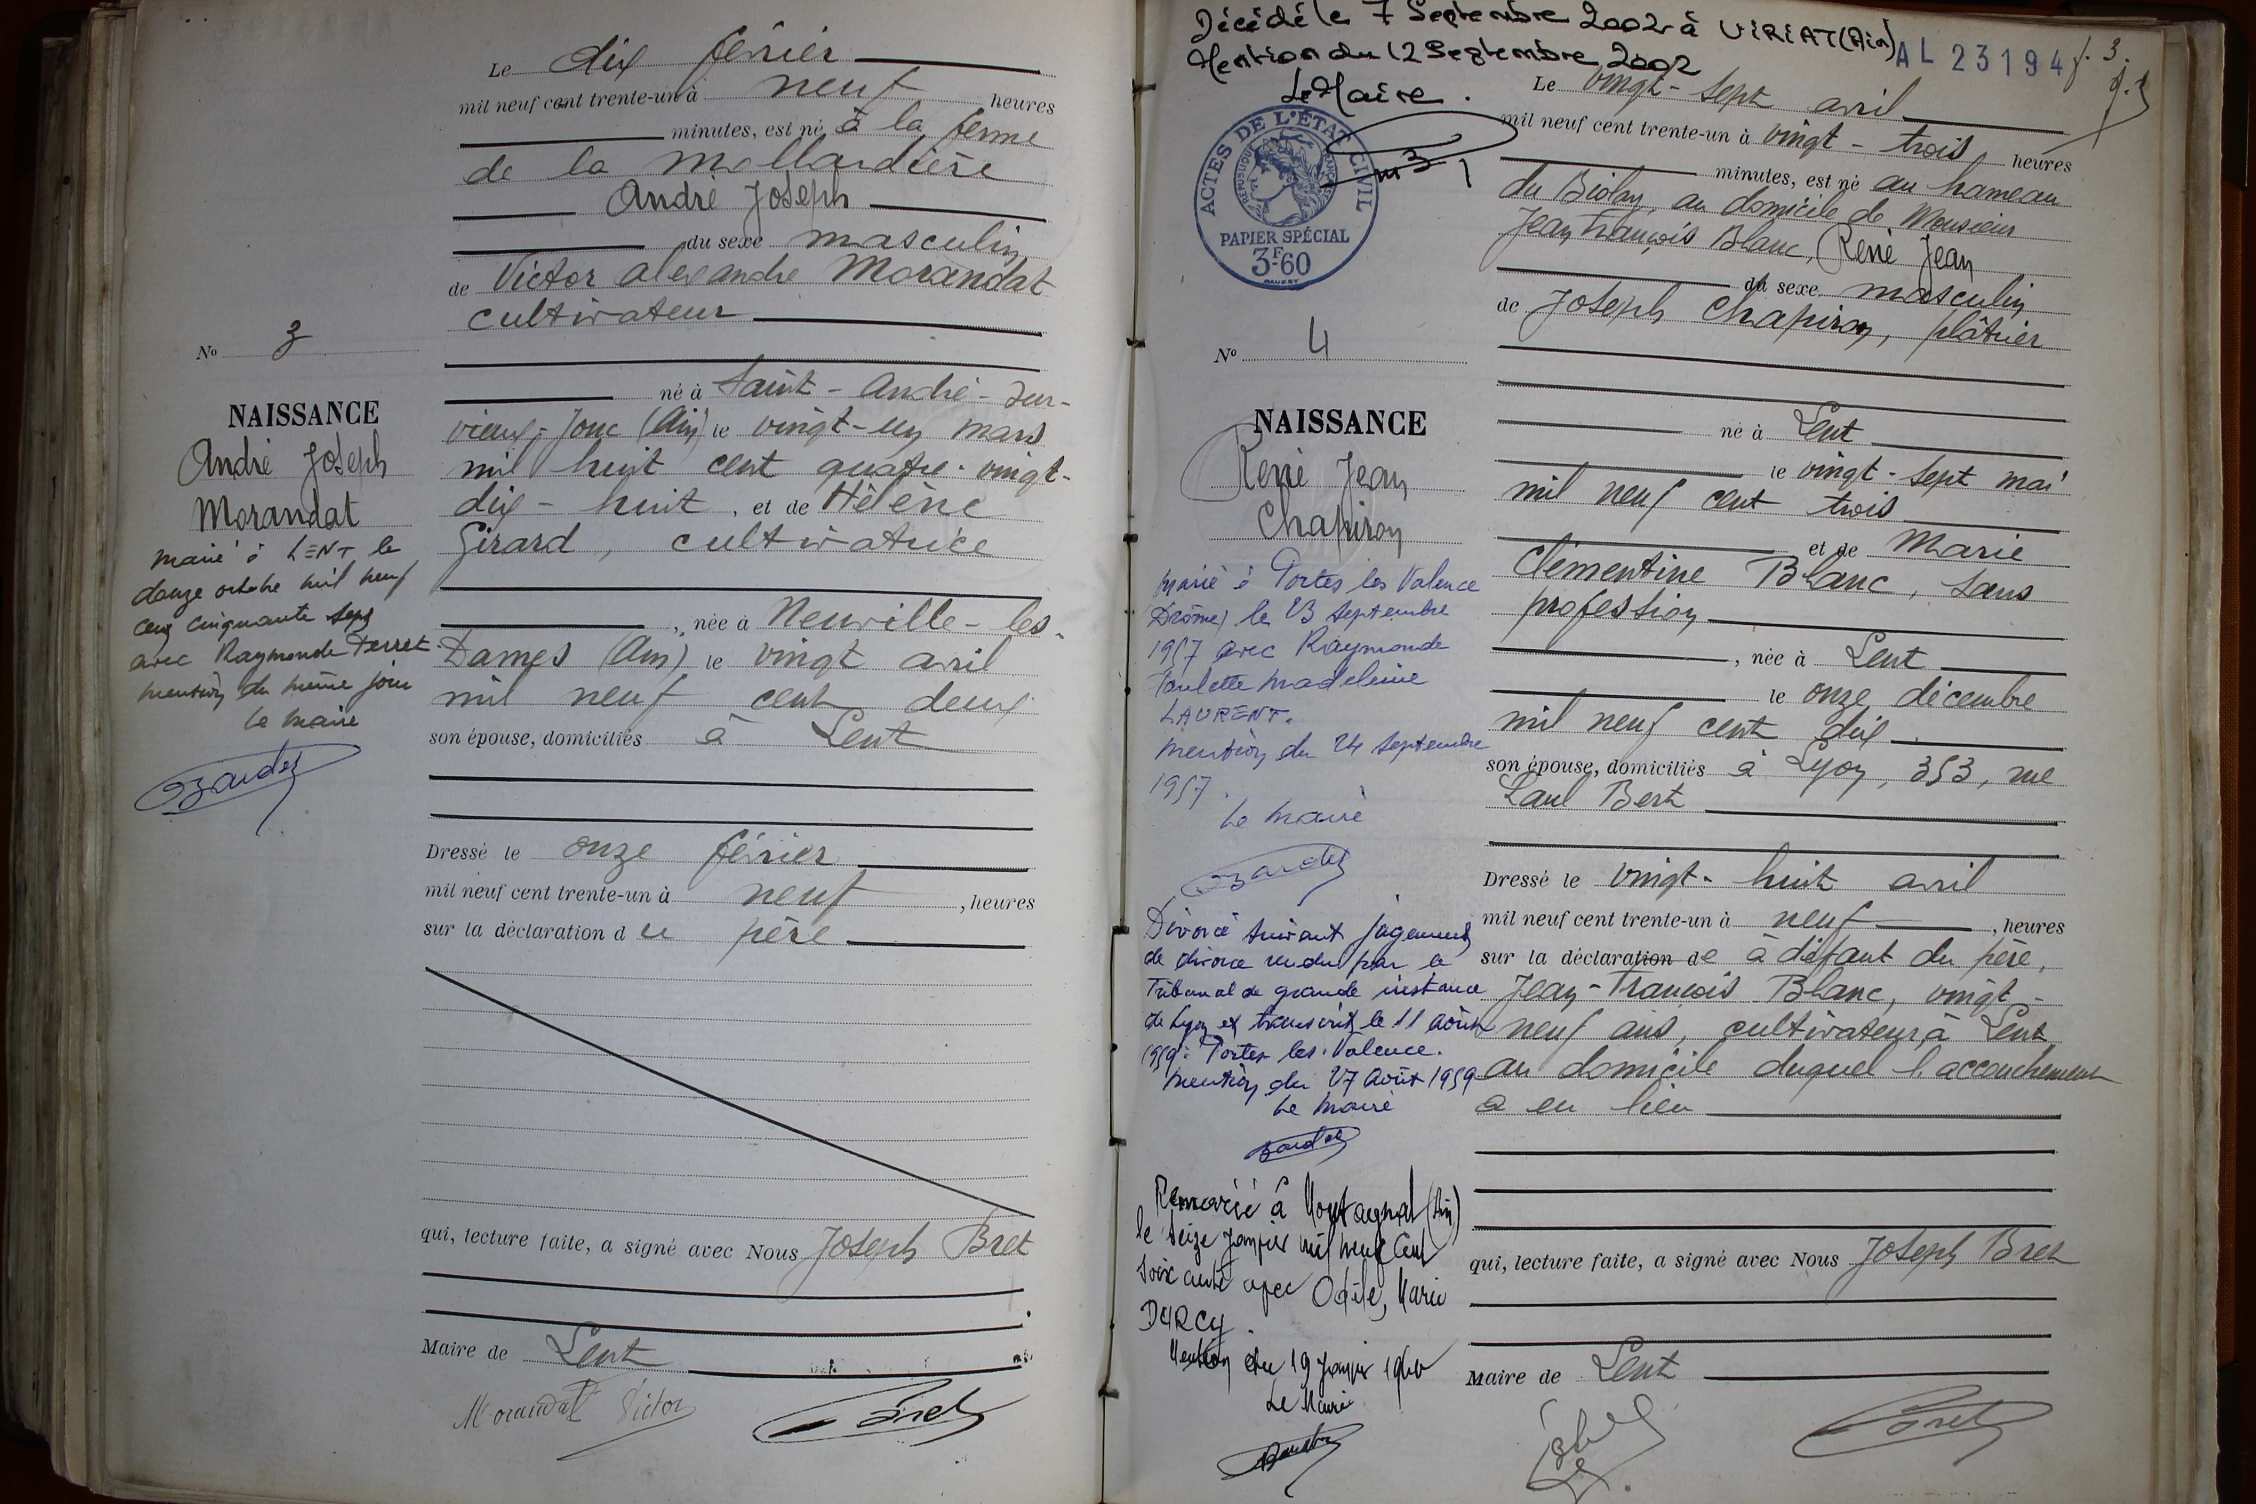 Le dix février
mil neuf cent trente-un à neuf heures
minutes, est né à la ferme
de la Mollardière
André Joseph
du sexe masculin
de Victor Alexandre Morandat
cultivateur
né à Saint-André-sur-
vieux-Jonc (Ain) le vingt-un mars
mil huit cent quatre-vingt-
dix-huit, et de Hélène
Girard, cultivatrice
, née à Neuville-les-
Dames (Ain) le vingt avril
mil neuf cent deux
son épouse, domiciliés à Lent
Dressé le onze février
mil neuf cent trente-un à neuf, heures
sur la déclaration du père
qui, lecture faite, a signé avec Nous Joseph Bret
Maire de Lent
Morandat Victor
Bret
No 3
NAISSANCE
André Joseph
Morandat
marié à LENT le
douze octobre mil neuf
cent cinquante sept
avec Raymonde Perret
mention du même jour
Le maire
Décédé le 7 Septembre 2002 à VIRIAT (Ain)
Mention du 12 Septembre 2002
Le Maire
AL 23194
f. 3.
ACTES DE L'ÉTAT CIVIL
RÉPUBLIQUE FRANÇAISE
PAPIER SPÉCIAL
3F60
Le vingt-sept avril
mil neuf cent trente-un à vingt-trois heures
minutes, est né au hameau
du Biolay, au domicile de Monsieur
Jean François Blanc, René Jean
du sexe masculin
de Joseph Chapiron, plâtrier
né à Lent
le vingt-sept mai
mil neuf cent trois
et de Marie
Clémentine Blanc, sans
profession
, née à Lent
le onze décembre
mil neuf cent dix
son épouse, domiciliés à Lyon, 353, rue
Paul Bert
Dressé le vingt-huit avril
mil neuf cent trente-un à neuf, heures
sur la déclaration de à défaut du père,
Jean-François Blanc, vingt-
neuf ans, cultivateur à Lent
au domicile duquel l'accouchement
a eu lieu
qui, lecture faite, a signé avec Nous Joseph Bret
Maire de Lent
Bret
No 4
NAISSANCE
René Jean
Chapiron
marié à Portes les Valence
(Drôme) le 23 septembre
1957 avec Raymonde
Paulette Madeleine
LAURENT.
mention du 24 septembre
1957.
Le maire
Divorcé suivant jugement
de divorce rendu par le
Tribunal de grande instance
de Lyon et transcrit le 11 août
1959 à Portes les Valence.
mention du 27 août 1959
Le maire
Remarié à Montagnat (Ain)
le seize janvier mil neuf cent
soixante avec Odile, Marie
DARCY.
Mention du 19 janvier 1960
Le Maire